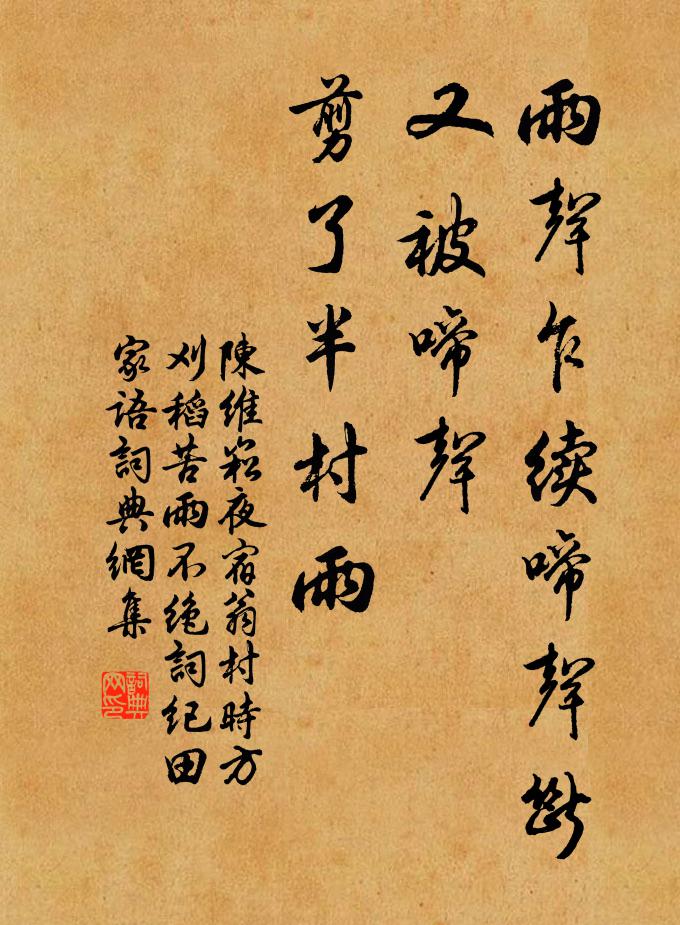 雨聲乍續啼聲斷
又被啼聲
剪了半村雨
陳維崧夜宿翁村時方
刈稻苦雨不絕詞紀田
家語詞典網集
詞典网印